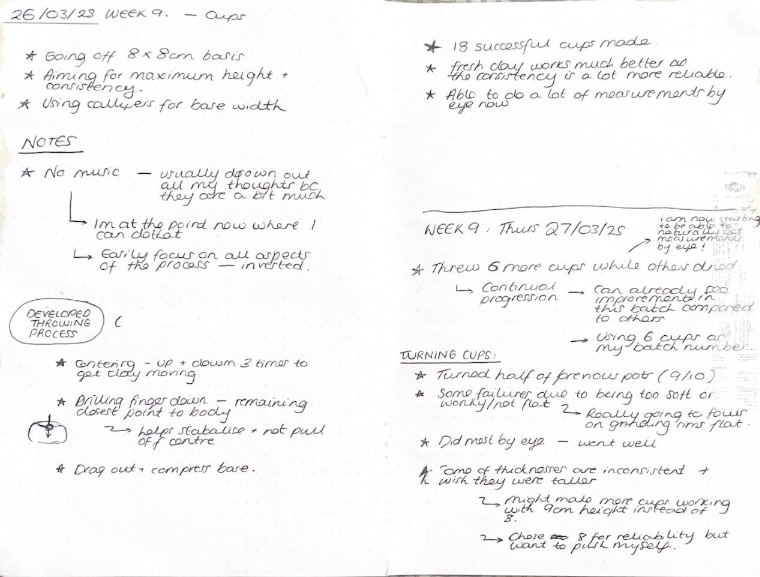 26/03/25 WEEK 9. — Cups
* Going off 8 x 8cm basis
* Aiming for maximum height +
consistency.
* Using callipers for base width
NOTES
* No music — usually drown out
all my thoughts bc
they are a bit much
Im at the point now where I
can do that
Easily focus on all aspects
of the process — invested.
DEVELOPED
THROWING
PROCESS
* Centering - up + down 3 times to
get clay moving
* Drilling finger down — remaining
closest point to body
helps stabalise + not pull
off centre
* Drag out + compress base.
* 18 successful cups made
* fresh clay works much better as
the consistency is a lot more reliable.
* Able to do a lot of measurements by
eye now
WEEK 9: Thurs 27/03/25
i am now starting
to be able to
naturally get
measurements
by eye!
* Threw 6 more cups while others dried
Continual
progression
Can already see
improvements in
this batch compared
to others
Using 6 cups as
my batch number.
TURNING CUPS:
* Turned half of previous pots (9/10)
* Some failures due to being too soft or
wonky/not flat
Really going to focus
on grinding rims flat.
* Did most by eye — went well
* Some of thicknesses are inconsistent +
wish they were taller
might make more cups working
with 9cm height instead of
8.
Chose 8 for reliability but
want to push myself.